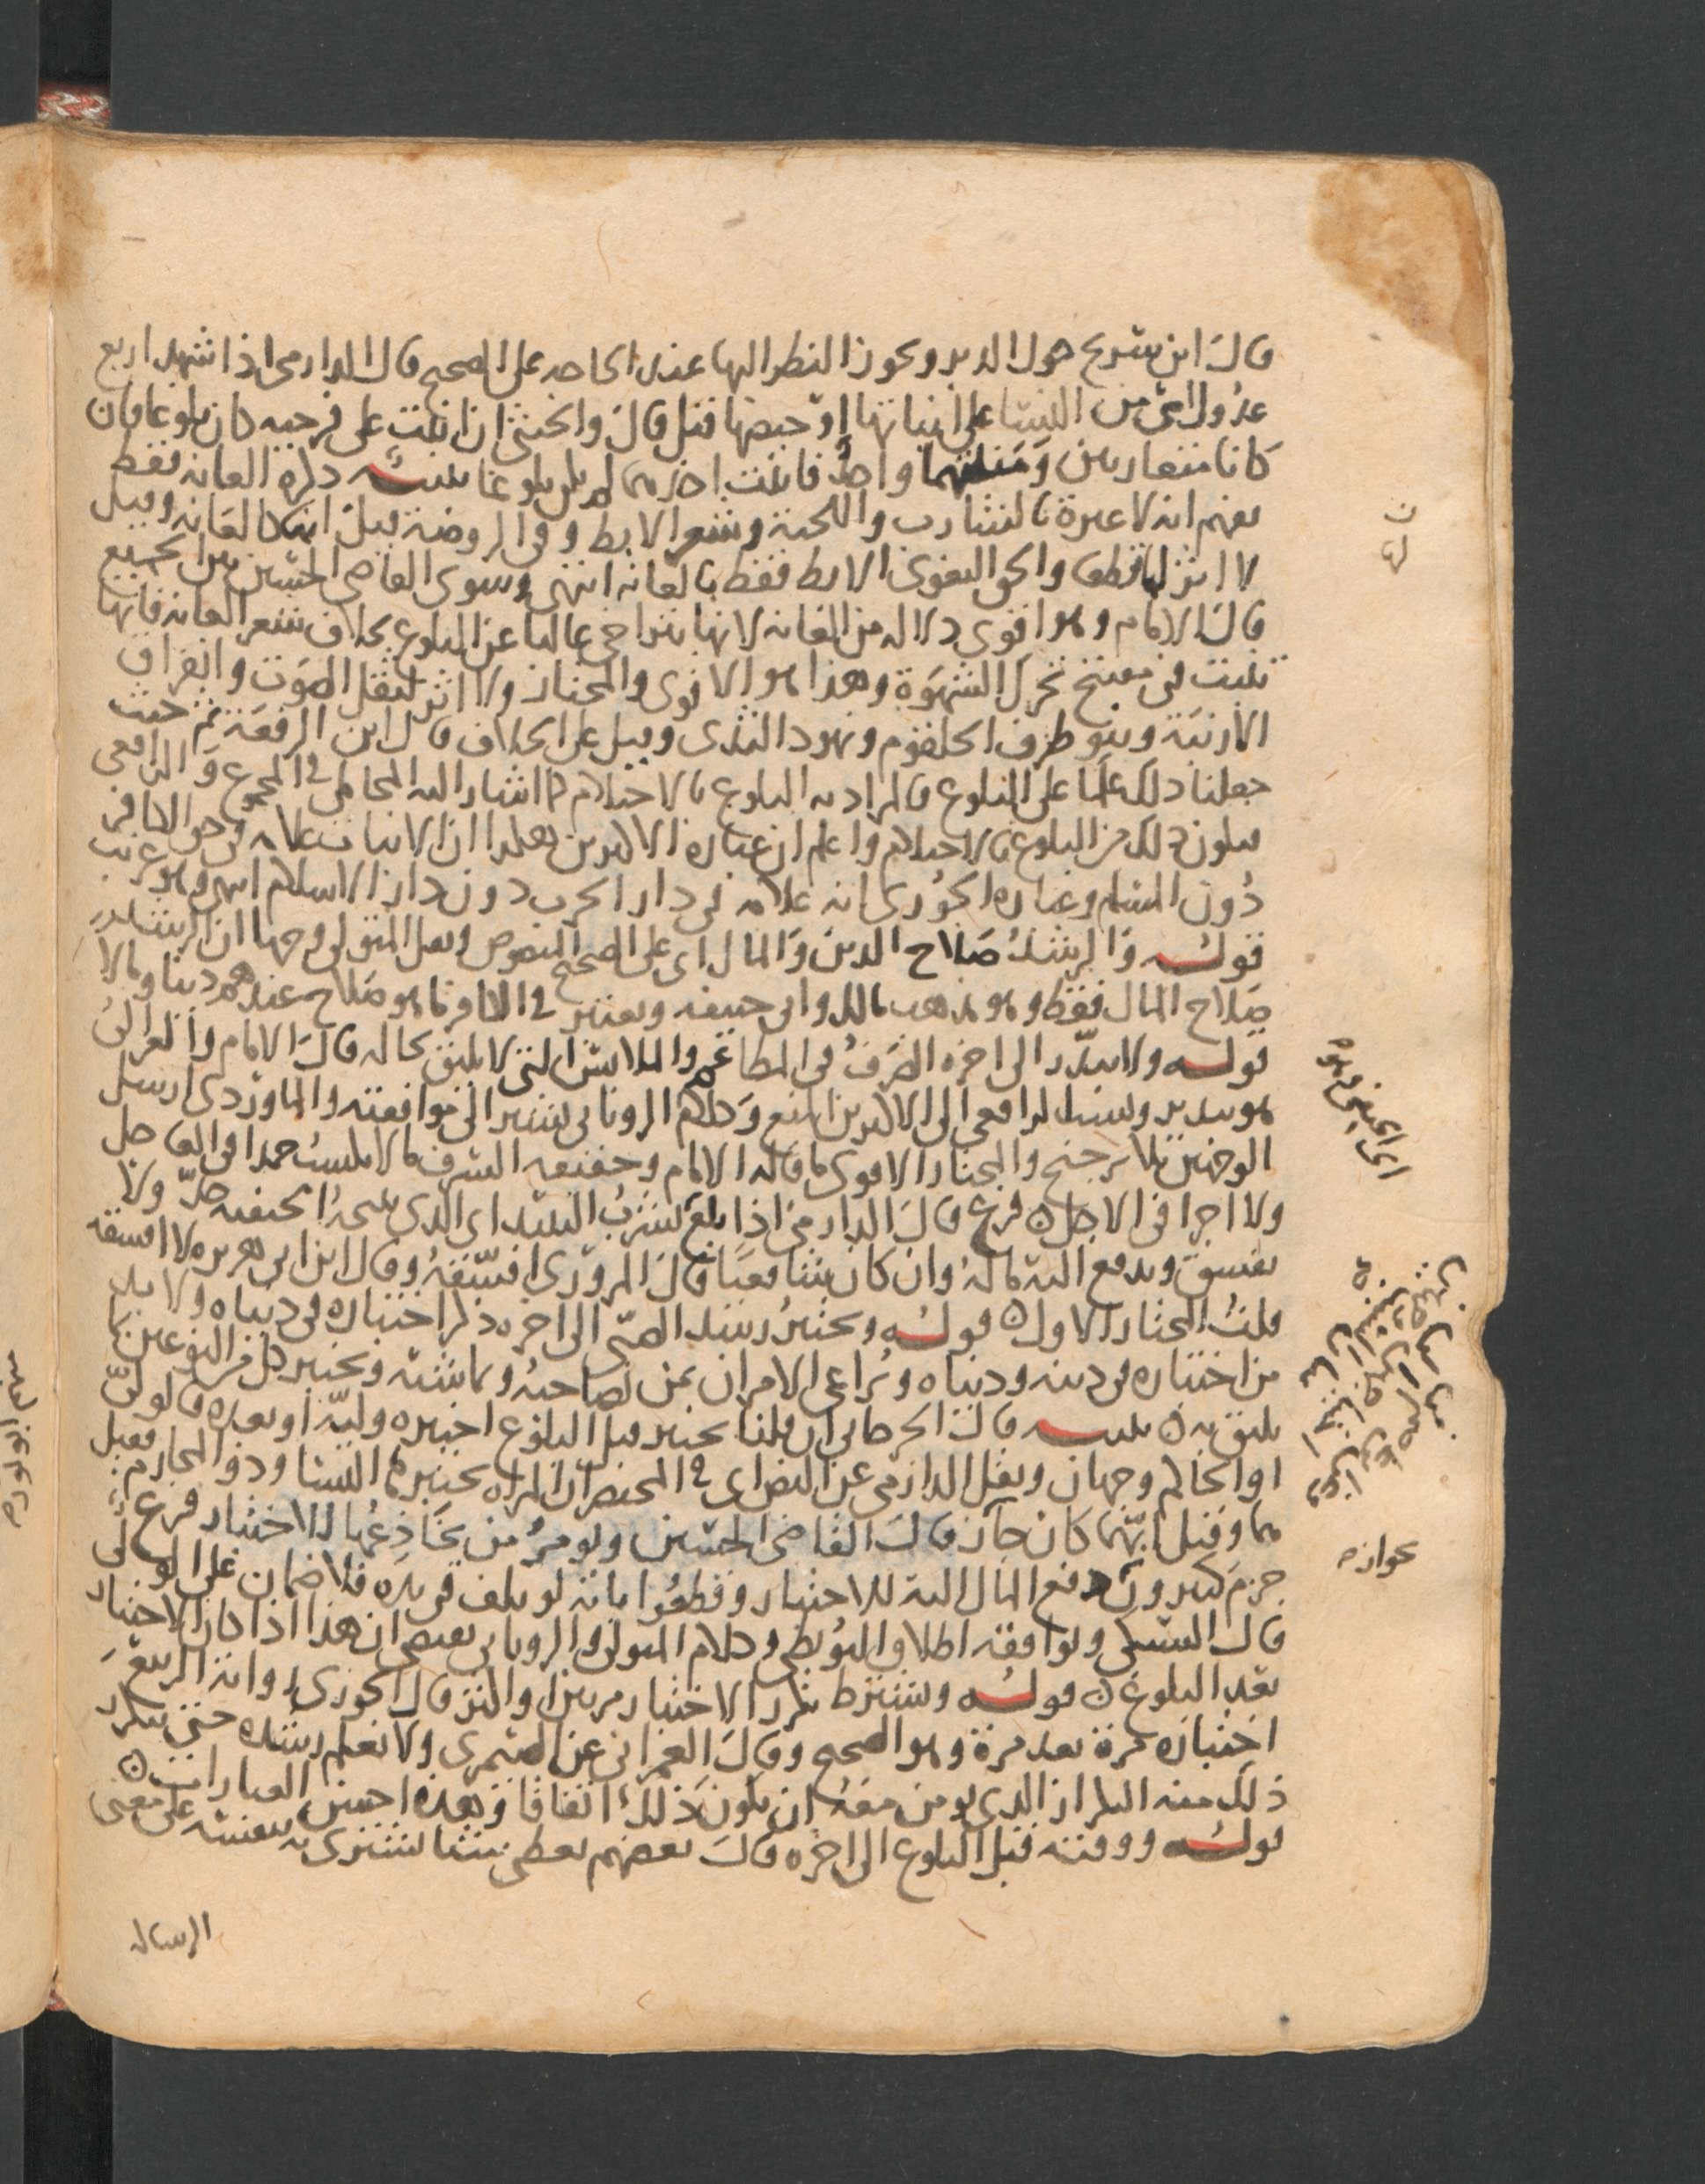 قال ابن سريج حول الدبر ويجوز النظر اليها عند الحاجة على الصحيح قال الدارمي اذا شهد اربع
عدول من النسا على انباتها او حيضها قبل قال والخنثى ان انبتت على فرجيه كان بلوغا وان
كانا متقاربين ومنبتهما واحد فانبتت احدهما لم يكن بلوغا تنبيه ذكره العانة فقط
يفهم انه لا عبرة بالشارب واللحية وشعر الابط وفي الروضة قيل انها كالعانة وقيل
لا اثر لها قطعا والحق البغوي الابط فقط بالعانة انتهى وسوى القاضي الحسين بين الجميع
قال الامام وهو اقوى دلالة من العانة لانها تتراخى غالبا عن البلوغ بخلاف شعر العانة فانها
تنبت في مفتتح تحرك الشهوة وهذا هو الاقوى والمختار ولا اثر لثقل الصوت وانفراق
الارنبة ونتو طرف الحلقوم ونهود الثدي وقيل على الخلاف قال ابن الرفعة ثم حيث
جعلنا ذلك علما على البلوغ فالمراد به البلوغ بالاحتلام كما اشار اليه المحاملي في المجموع والرافعي
فيكون ذلك من البلوغ بالاحتلام واعلم ان عبارة الاكثرين هكذا ان الانبات علامة في حق الكافر
دون المسلم وعبارة الجوري انه علامة في دار الحرب دون دار الاسلام انتهى وهو غريب
قوله والرشد صلاح الدين والمال اي على الصحيح المنصوص ونقل المتولي وجها ان الرشد
صلاح المال فقط وهو مذهب مالك وابي حنيفة ويعتبر في الكافر ما هو صلاح عندهم دينا ومالا
قوله ولا يبذر الى اخره الصرف في المطاعم والملابس التي لا يليق بحاله قال الامام والغزالي
هو تبذير ونسب الرافعي الى الاكثرين المنع وكلام الروياني يشير الى موافقته والماوردي ارسل
الوجهين بلا ترجيح والمختار الاقوى ما قاله الامام وحقيقة السرف ما لا يكسب حمدا في العاجل
ولا اجرا في الاجل فرع قال الدارمي اذا بلغ يشرب النبيذ اي الذي يبيحه الحنفية حد ولا
يفسق ويدفع اليه ماله وان كان شافعيا قال المروزي افسقه وقال ابن ابي هريرة لا افسقه
قلت المختار الاول قوله ويختبر رشد الصبي الى اخره ذكر اختباره في دنياه ولا بد
من اختباره في دينه ودنياه ويراعى الامران بمن يصاحبه ويماشيه ويختبر كل من النوعين بما
يليق به تنبيه قال الجرجاني ان قلنا يختبر قبل البلوغ اختبره وليه او بعده فالولي
او الحاكم وجهان ونقل الدارمي عن النص اي في المختصر ان المراة يختبرها النسا وذو المحارم فقيل
هما وقيل ايهما كان جاز قال القاضي الحسين ويومر من يخادعها للاختبار فرع
جزم كثيرون بدفع المال اليه للاختبار وقطعوا بانه لو تلف في يده فلا ضمان على الولي
قال السبكي ويوافقه اطلاق البويطي وكلام المتولي والروياني يقتضي ان هذا اذا كان الاختبار
بعد البلوغ قوله ويشترط تكرر الاختبار مرتين او اكثر قال الجوري رواية الربيع
اختباره مرة بعد مرة وهو الصحيح وقال العمراني عن الصيمري ولا نعلم رشده حتى يتكرر
ذلك منه التكرار الذي يومن معه ان يكون ذلك اتفاقا وهذه احسن العبارات
قوله ووقته قبل البلوغ الى اخره قال بعضهم يعطى شيئا يشتري به بنفسه على معنى
الرسالة
بجوازه